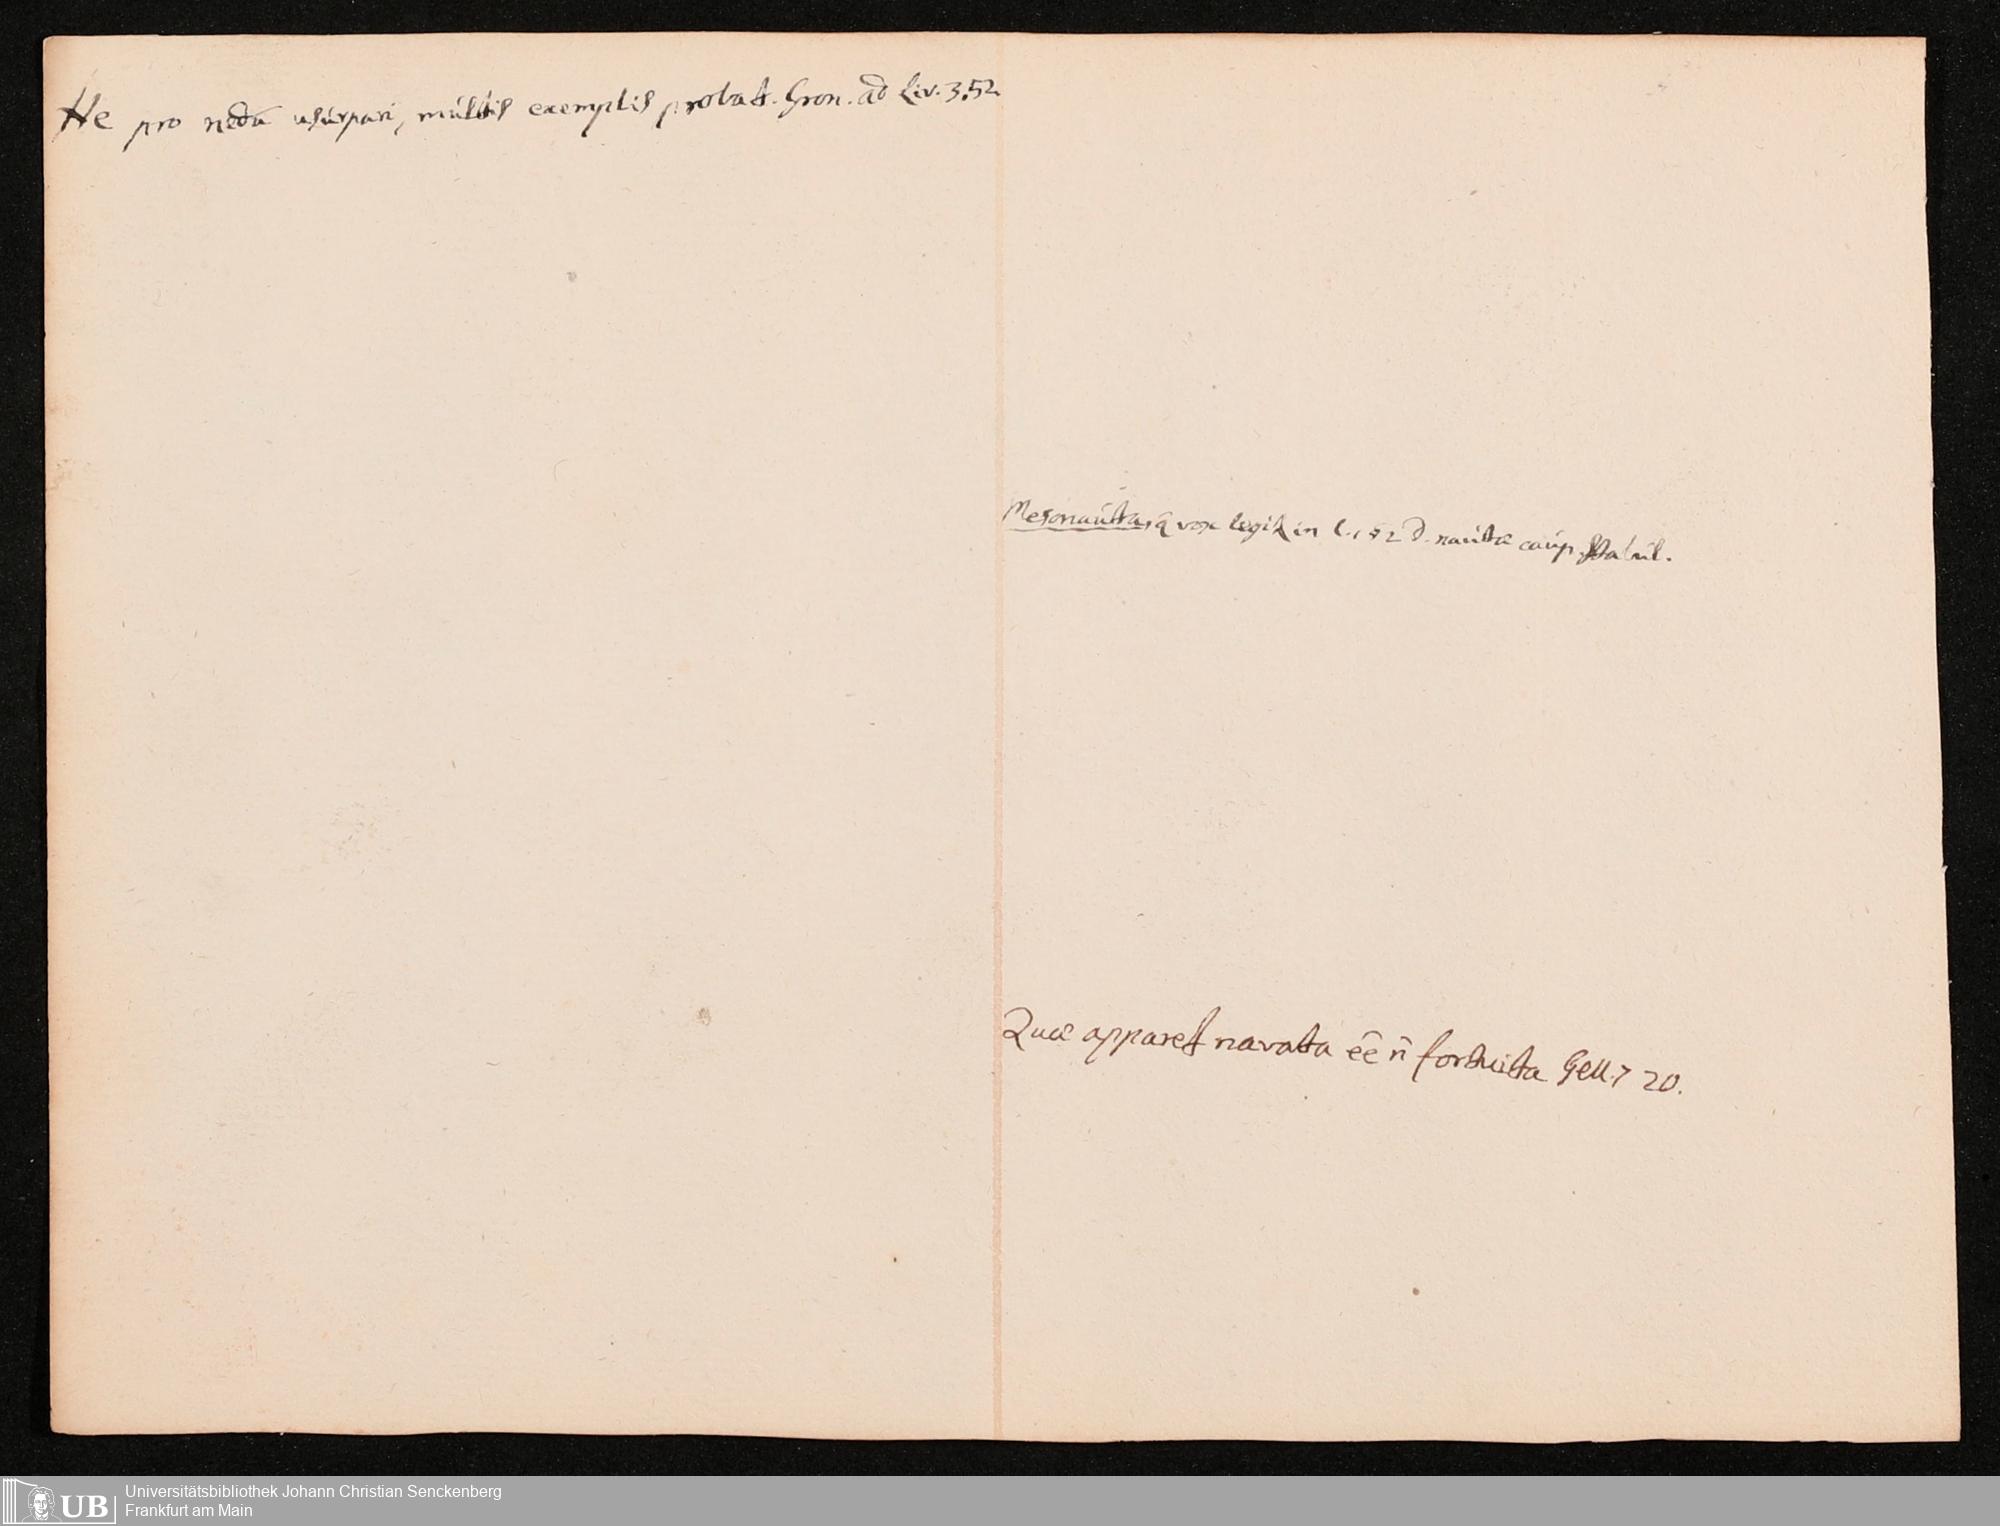 Ne pro nedū usúrpari, múltis exemplis probat. Gron. ad Liv. 3.52
Mesonaútas, q̄ vox legit in l. 1 § 2 D. nautæ caúp. stabúl.
Quæ apparet navata êe n̄ fortuita Gell. 7 20.
UB
Universitätsbibliothek Johann Christian Senckenberg
Frankfurt am Main